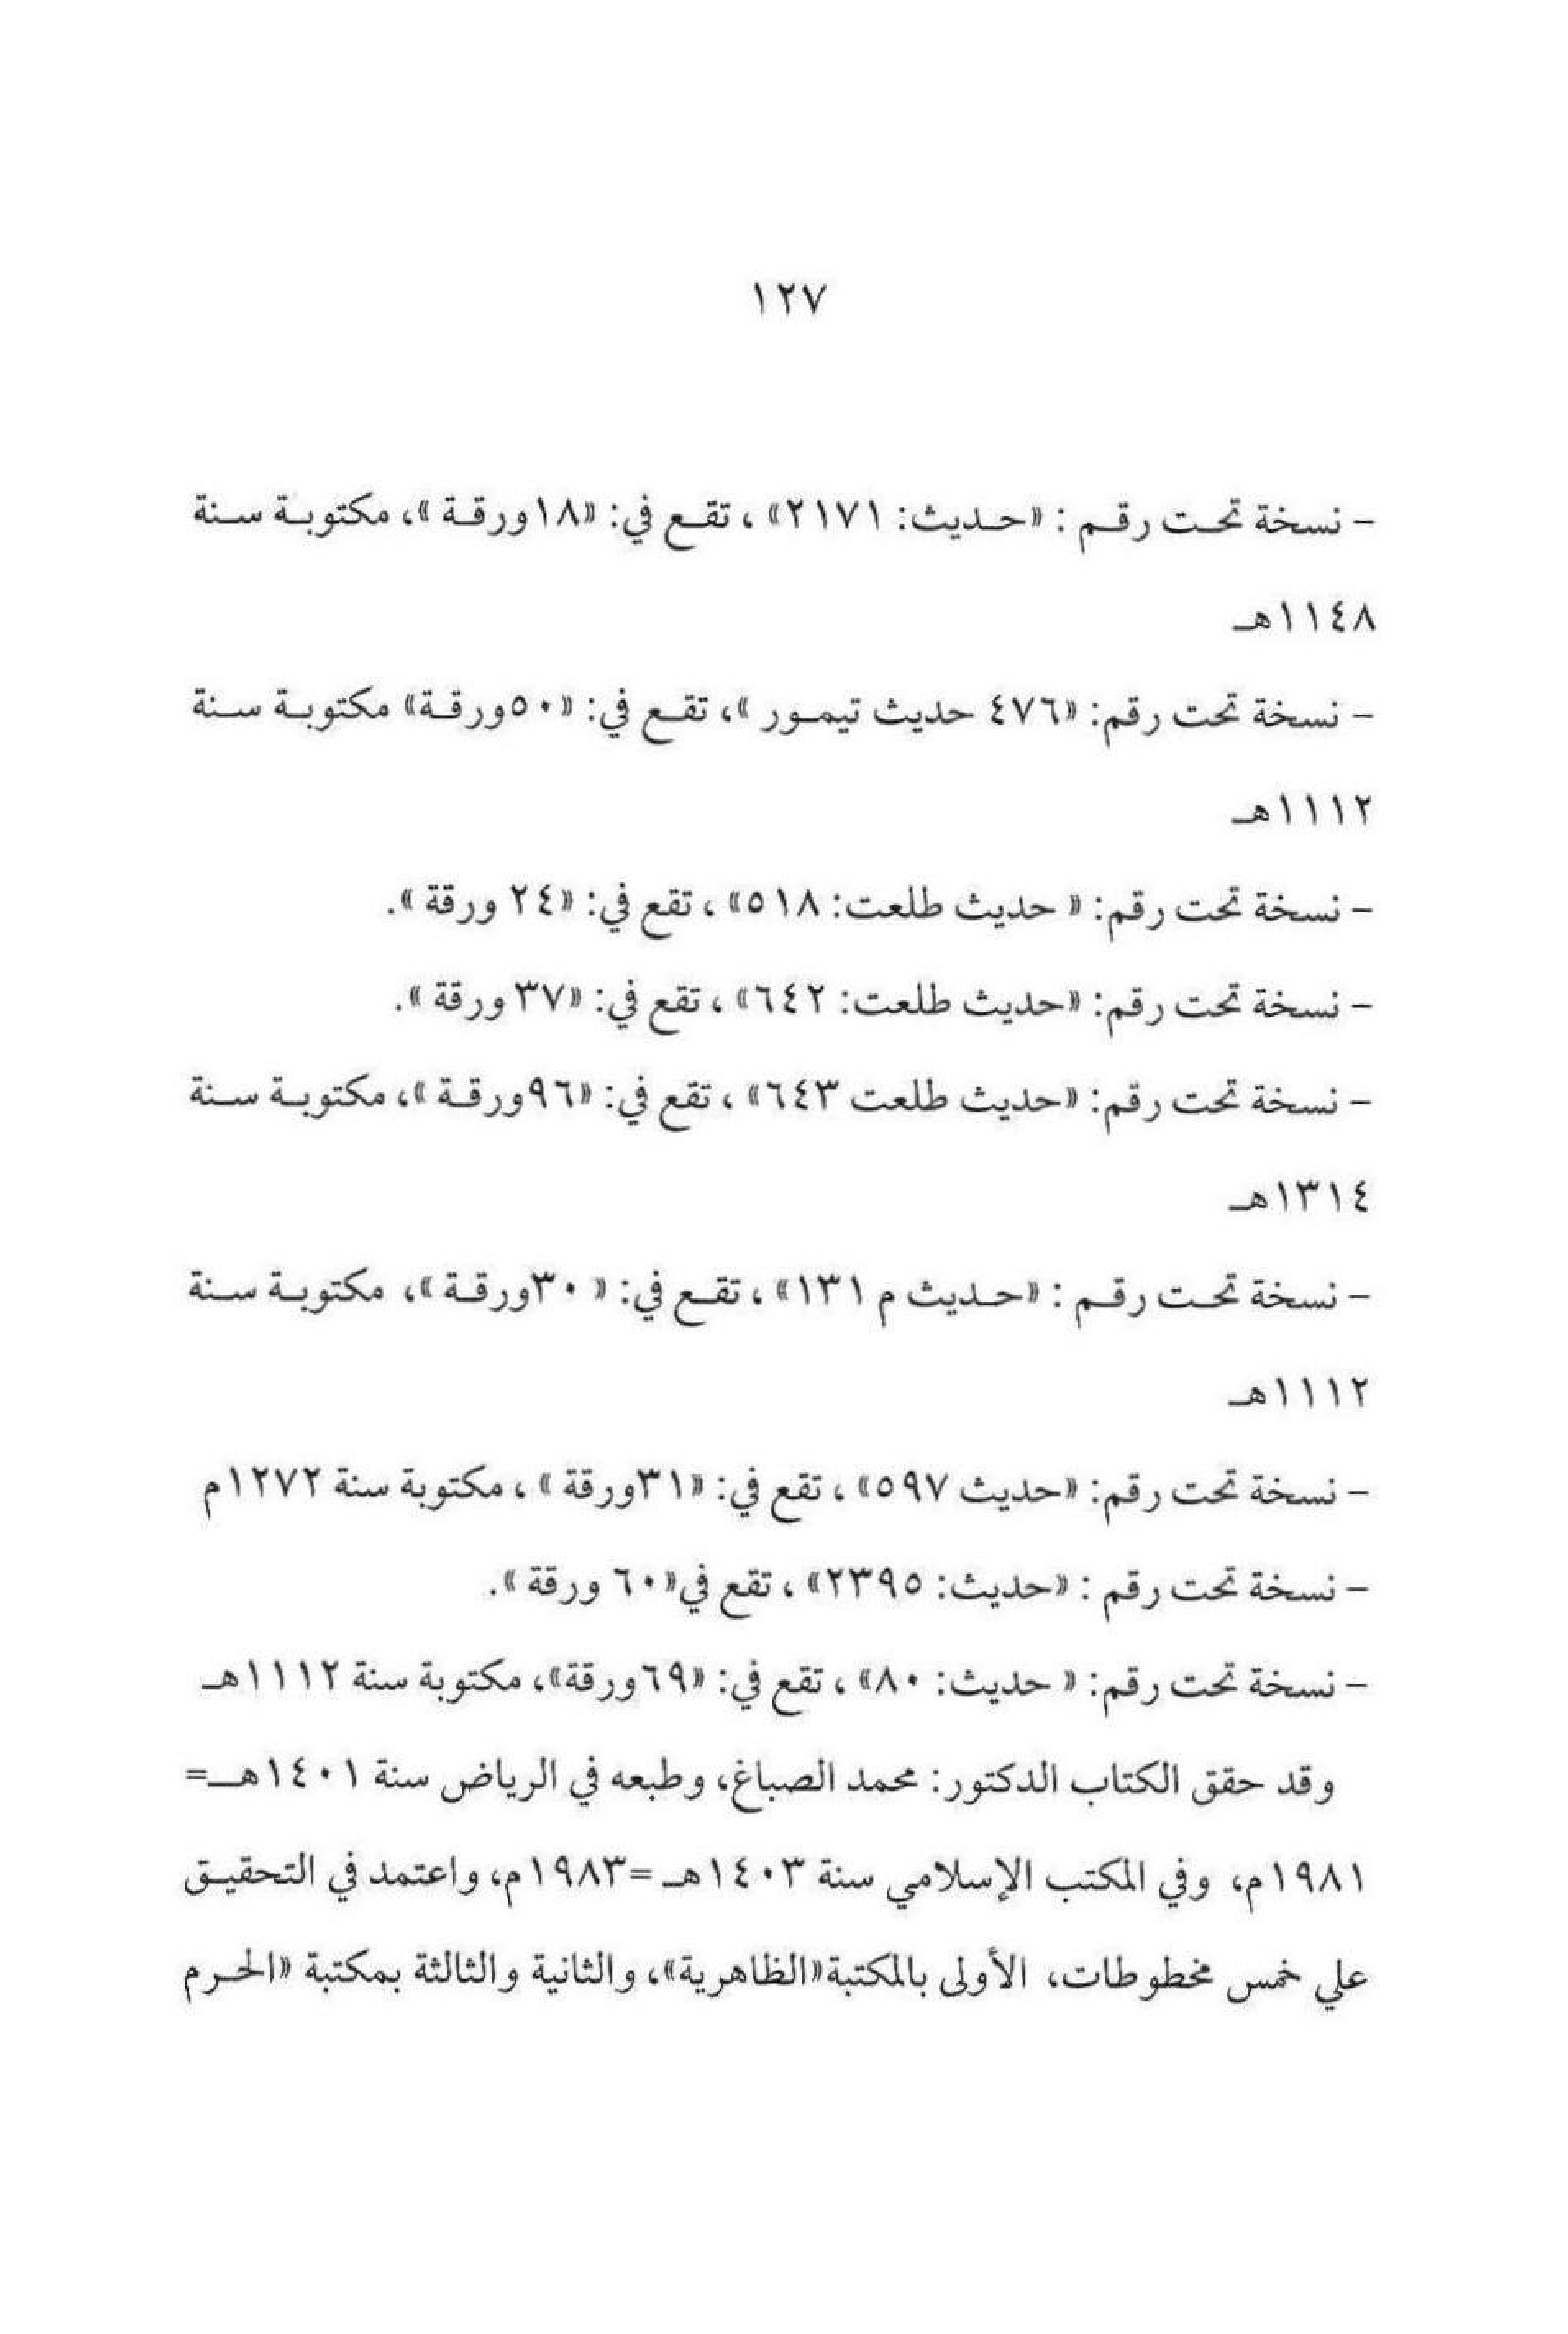 ١٢٧
- نسخة تحت رقم : «حديث: ٢١٧١» ، تقع في: «١٨ورقة »، مكتوبة سنة
١١٤٨هـ
- نسخة تحت رقم: «٤٧٦ حديث تيمور »، تقع في: «٥٠ورقة» مكتوبة سنة
١١١٢هـ
- نسخة تحت رقم: « حديث طلعت: ٥١٨» ، تقع في: «٢٤ ورقة ».
- نسخة تحت رقم: «حديث طلعت: ٦٤٢» ، تقع في: «٣٧ ورقة ».
- نسخة تحت رقم: «حديث طلعت ٦٤٣» ، تقع في: «٩٦ورقة »، مكتوبة سنة
١٣١٤هـ
- نسخة تحت رقم : «حديث م ١٣١» ، تقع في: « ٣٠ورقة »، مكتوبة سنة
١١١٢هـ
- نسخة تحت رقم: «حديث ٥٩٧» ، تقع في: «٣١ورقة » ، مكتوبة سنة ١٢٧٢م
- نسخة تحت رقم : «حديث: ٢٣٩٥» ، تقع في«٦٠ ورقة ».
- نسخة تحت رقم: « حديث: ٨٠» ، تقع في: «٦٩ورقة»، مكتوبة سنة ١١١٢هـ
وقد حقق الكتاب الدكتور: محمد الصباغ، وطبعه في الرياض سنة ١٤٠١هـ=
١٩٨١م، وفي المكتب الإسلامي سنة ١٤٠٣هـ =١٩٨٣م، واعتمد في التحقيق
علي خمس مخطوطات، الأولى بالمكتبة«الظاهرية»، والثانية والثالثة بمكتبة «الحرم